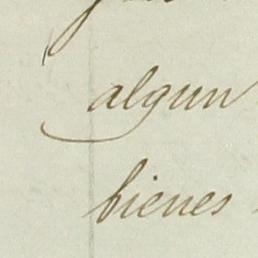 algun
bienes